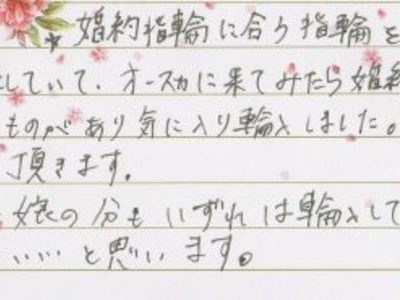 ★ 婚約指輪に合う指輪を
していて、オースカに来てみたら婚約
ものがあり気に入り輪入しました。
頂きます。
娘の分もいずれは輪入して
いいと思います。